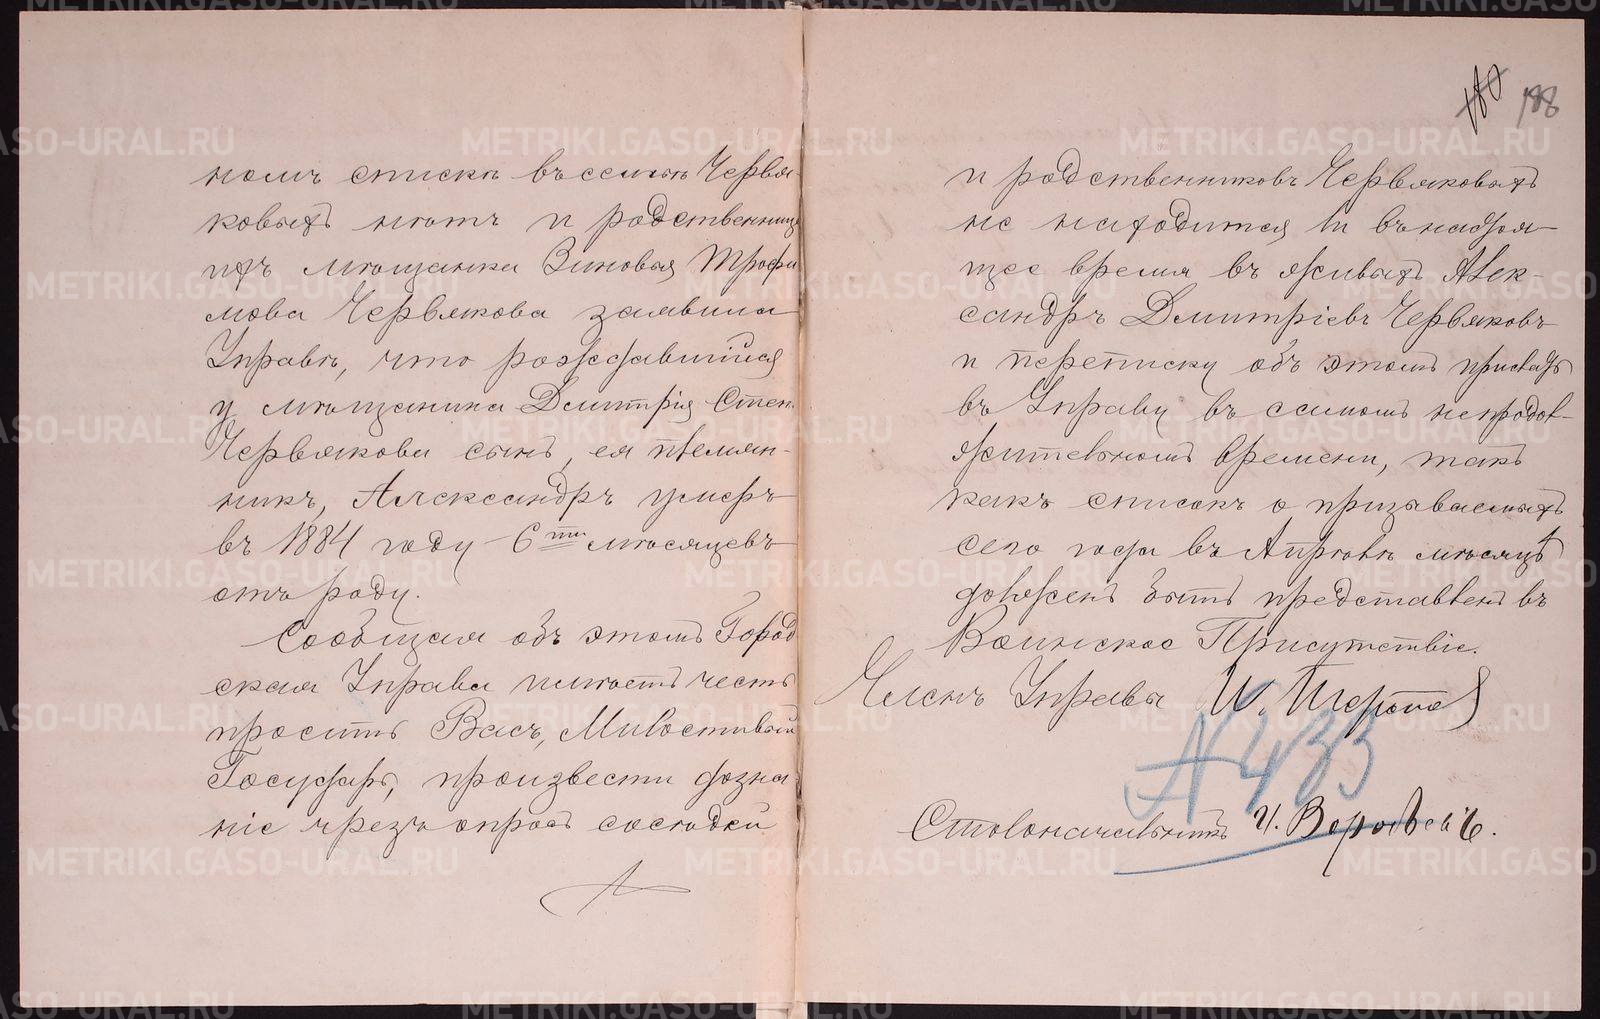 номъ списке въ семьѣ Червя-
ковыхъ нѣтъ и родственница
ихъ мѣщанка Зиновья Трофи
мова Червякова заявила
Управѣ, что рождавшійся
у мѣщанина Дмитрія Степ.
Червякова сынъ, ея племян-
никъ, Александръ умеръ
въ 1884 году 6ти мѣсяцевъ
отъ роду.
Сообщая объ этомъ Город
ская Управа имѣетъ честь
просить Васъ, Милостивый
Государь, произвести дозна-
ніе чрезъ опросъ сосѣдей
180 188
и родственниковъ Червяковыхъ
не находится ли въ настоя-
щее время въ живыхъ Алек-
сандръ Дмитріевъ Червяковъ
и переписку объ этомъ прислать
въ Управу въ самомъ непродол-
жительномъ времени, такъ
какъ списокъ о призываемыхъ
сего года въ Апрѣлѣ мѣсяцѣ
долженъ быть представленъ въ
Воинское Присутствіе.
Членъ Управы И.
№ 433
Столоначальникъ И. Воробьевъ.
METRIKI.GASO-URAL.RU